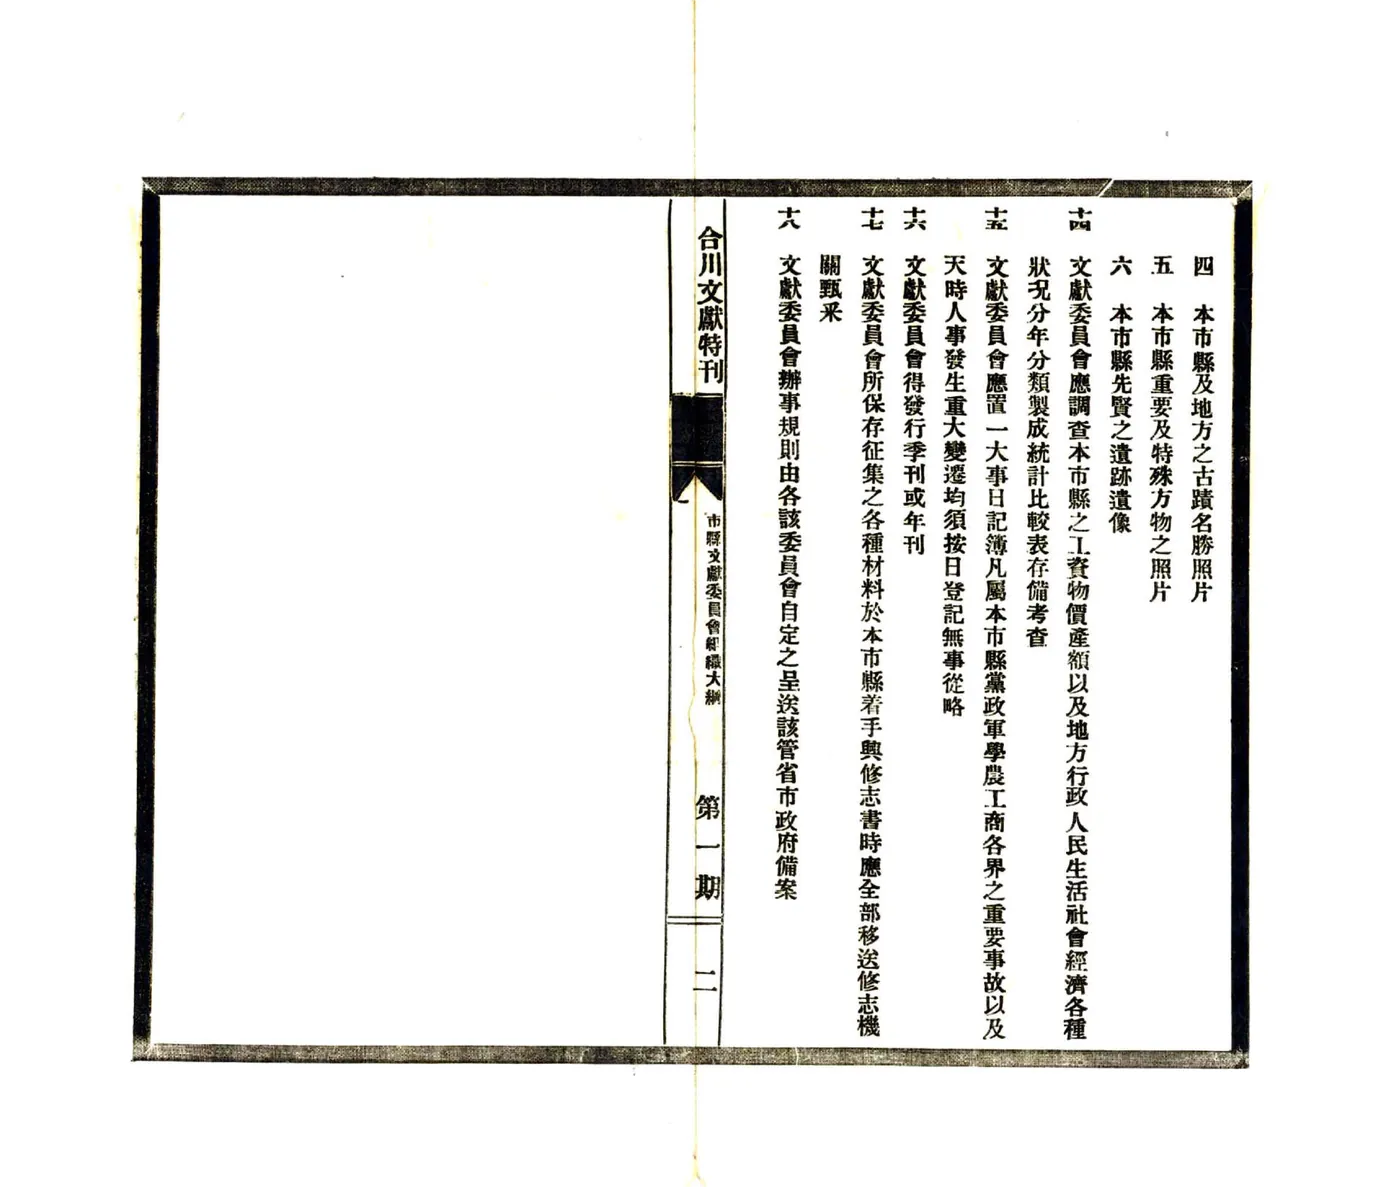 四　本市縣及地方之古蹟名勝照片
五　本市縣重要及特殊方物之照片
六　本市縣先賢之遺跡遺像
十四　文獻委員會應調查本市縣之工資物價產額以及地方行政人民生活社會經濟各種
狀況分年分類製成統計比較表存備考查
十五　文獻委員會應置一大事日記簿凡屬本市縣黨政軍學農工商各界之重要事故以及
天時人事發生重大變遷均須按日登記無事從略
十六　文獻委員會得發行季刊或年刊
十七　文獻委員會所保存征集之各種材料於本市縣着手興修志書時應全部移送修志機
關甄采
十八　文獻委員會辦事規則由各該委員會自定之呈送該管省市政府備案
合川文獻特刊
市縣文獻委員會組織大綱
第一期
二